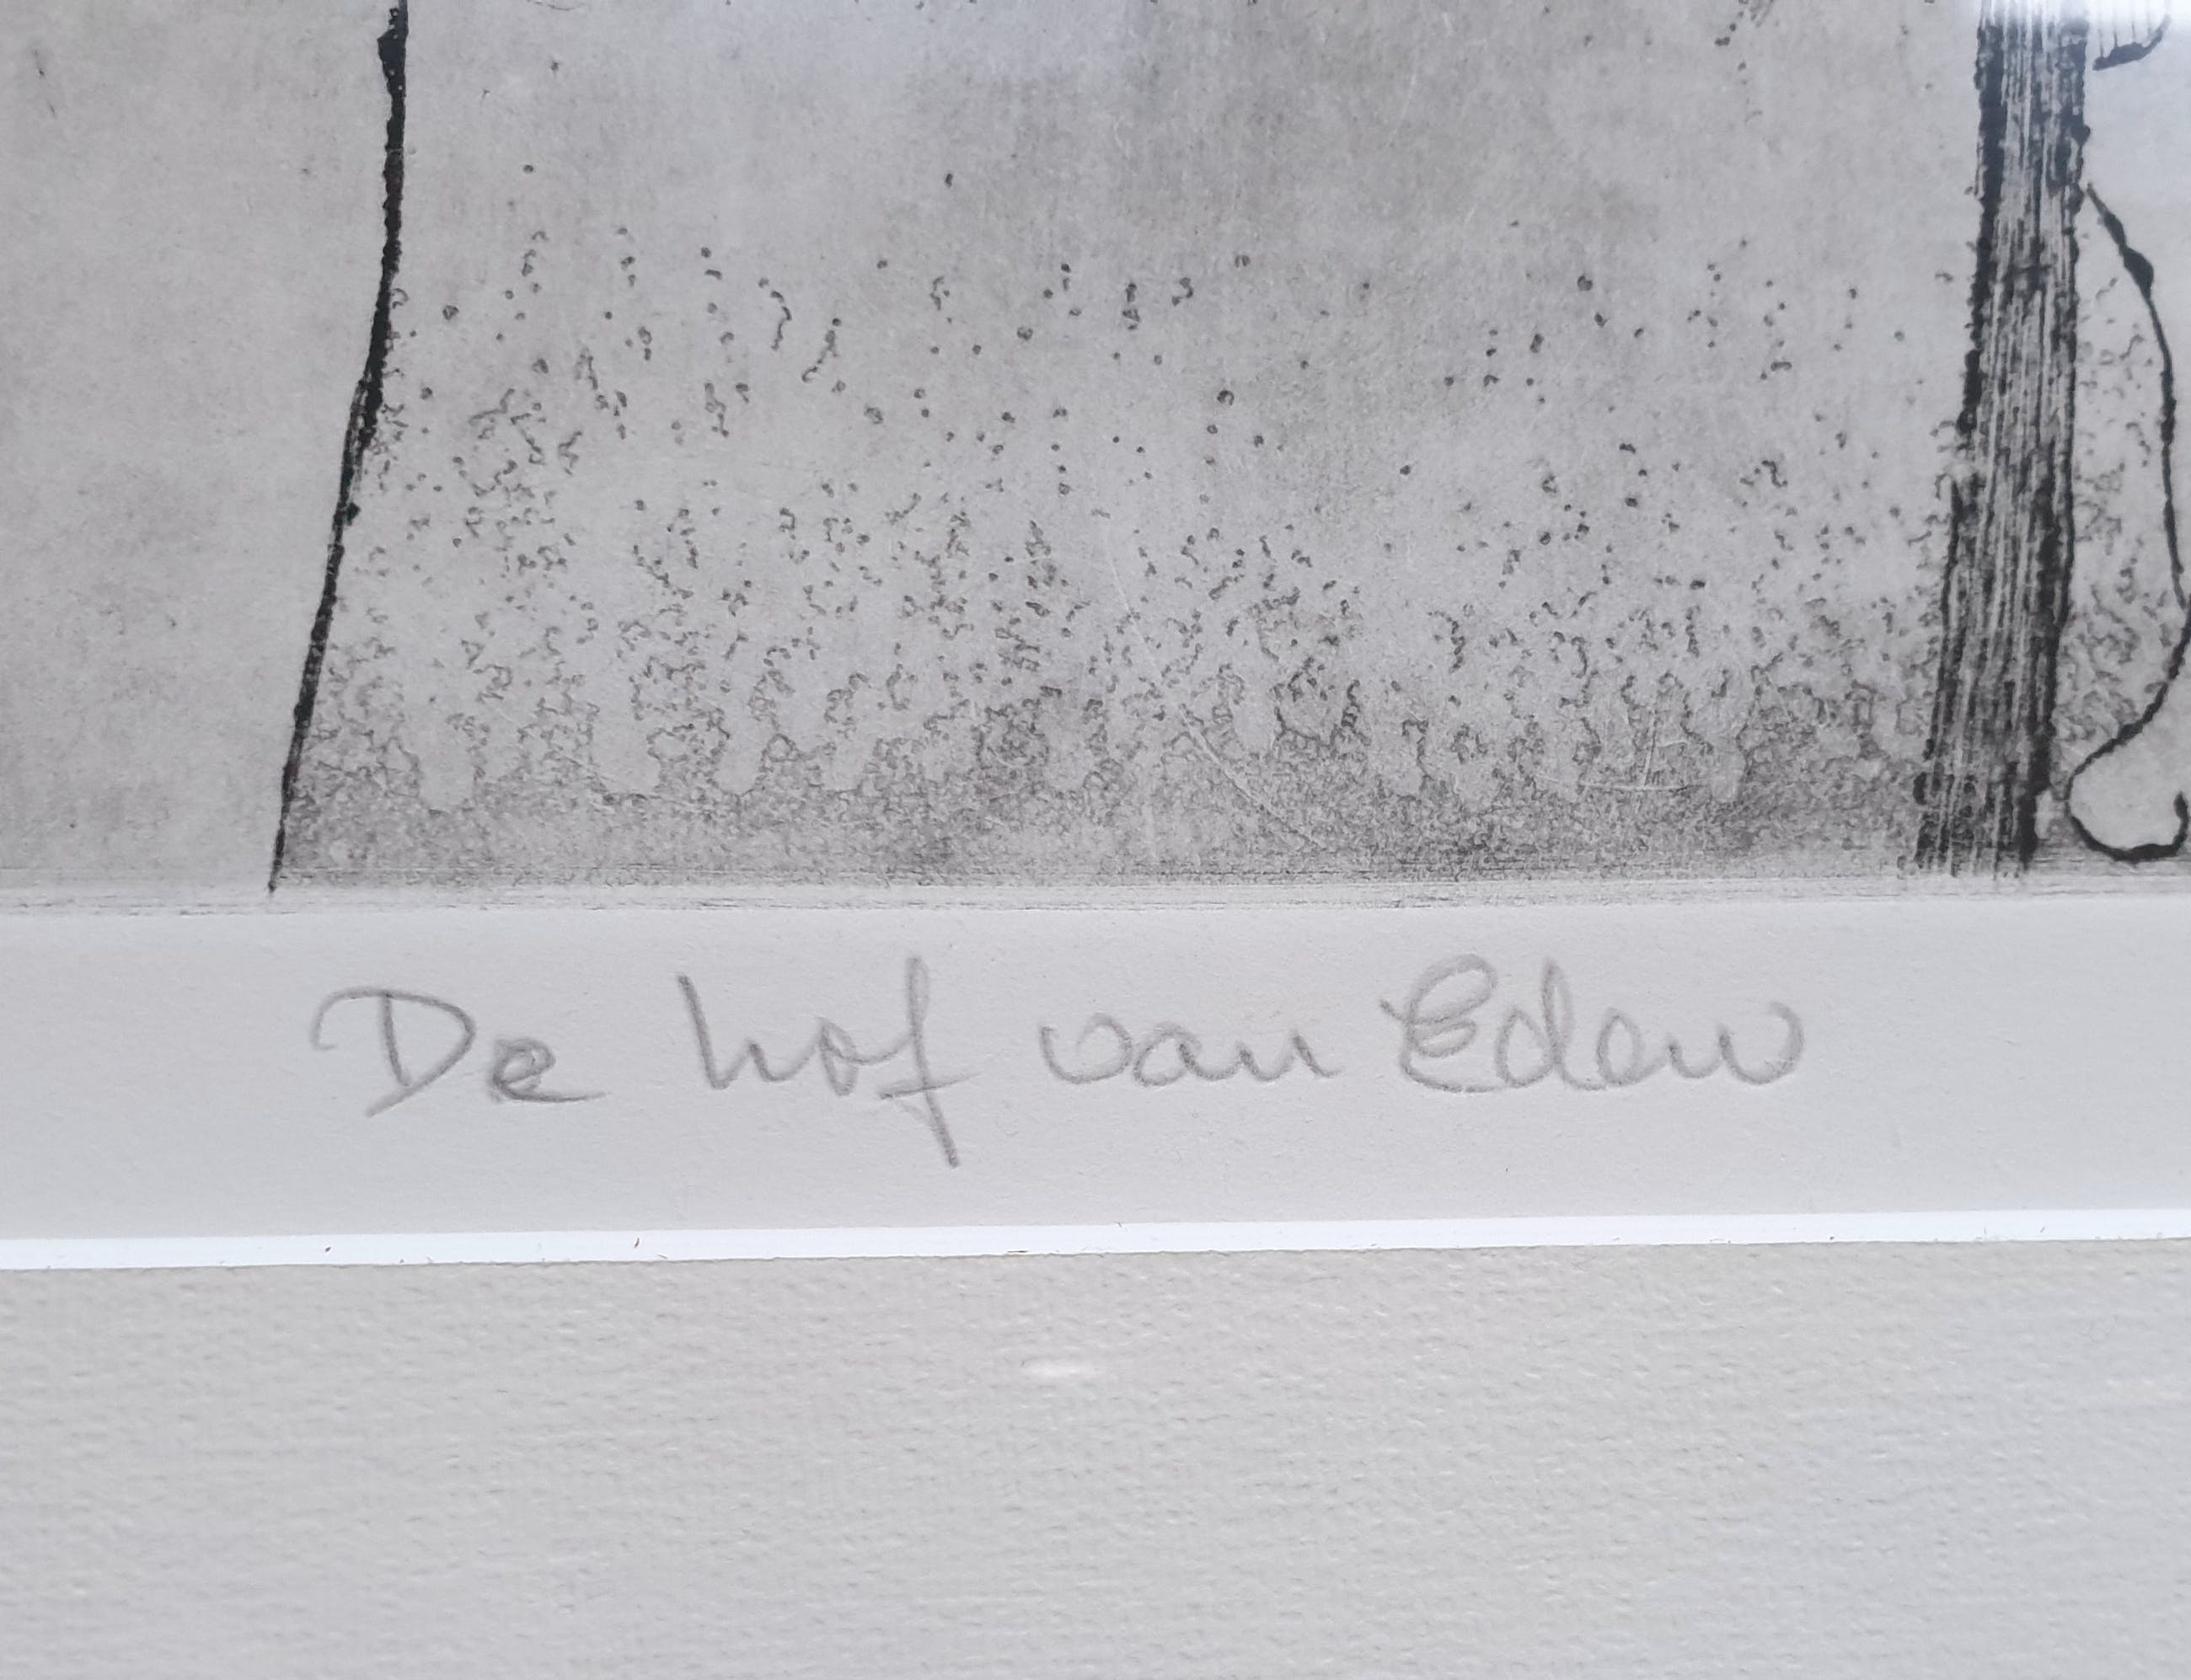 De hof van Eden